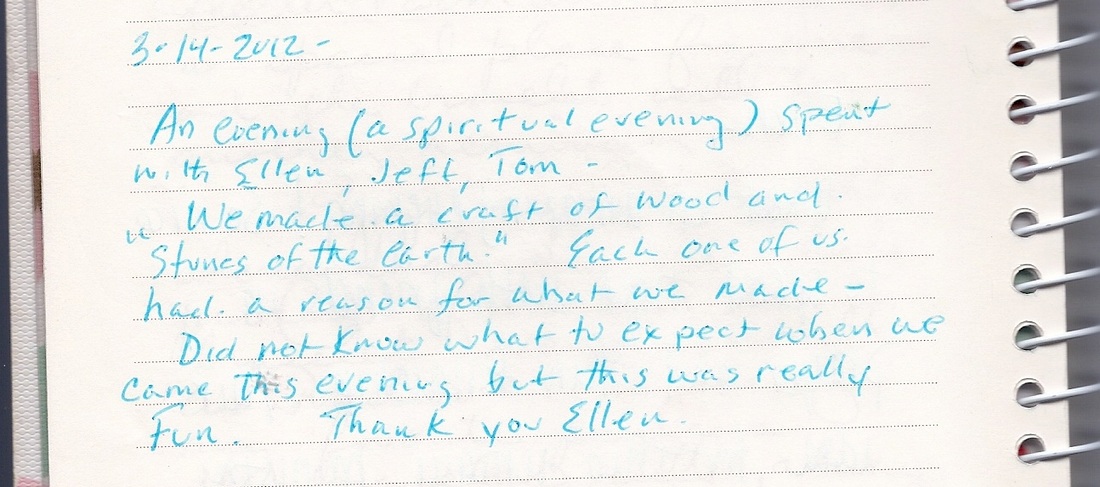 3-14-2012-
An evening (a spiritual evening) spent
with Ellen, Jeff, Tom -
We made a craft of wood and
"Stones of the Earth." Each one of us
had a reason for what we made -
Did not know what to expect when we
came this evening but this was really
Fun. Thank you Ellen.